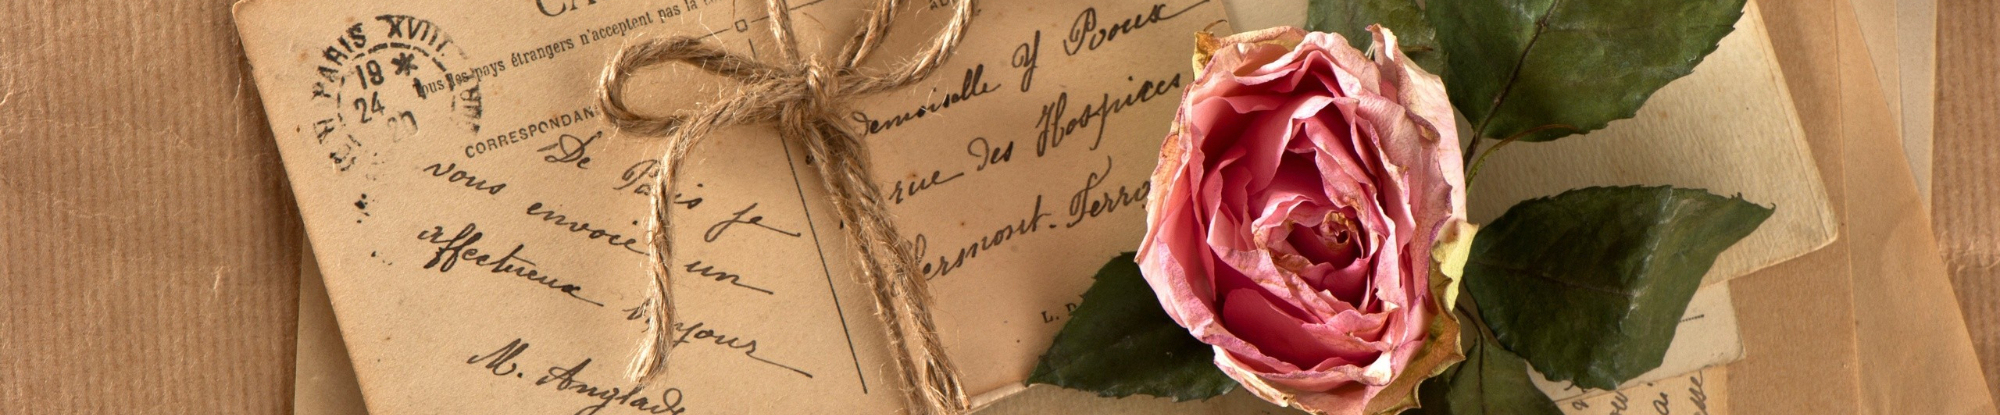 PARIS XVIII
19 *
24
20
CA
Tous les pays étrangers n'acceptent pas la
CORRESPONDAN
De Paris je
vous envoie un
affectueux
M. Anglade
demoiselle Y Proux
rue des Hospices
Clermont-Ferra
L. D